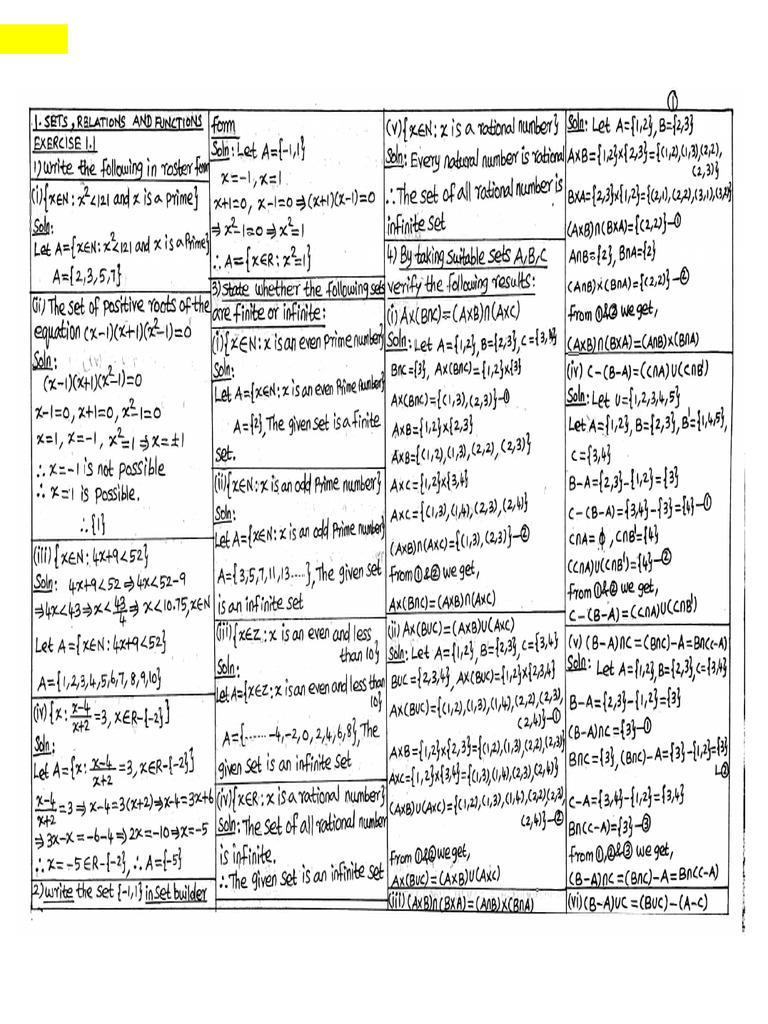 ①
1. SETS, RELATIONS AND FUNCTIONS
EXERCISE 1.1
1) Write the following in roster form
(i) {x∈N: x²<121 and x is a Prime}
Soln:
Let A={x∈N: x²<121 and x is a Prime}
A={2,3,5,7}
(ii) The set of positive roots of the
equation (x-1)(x+1)(x²-1)=0
Soln:
(x-1)(x+1)(x²-1)=0
x-1=0, x+1=0, x²-1=0
x=1, x=-1, x²=1⇒x=±1
∴x=-1 is not possible
∴x=1 is possible.
∴{1}
(iii) {x∈N: 4x+9<52}
Soln: 4x+9<52⇒4x<52-9
⇒4x<43⇒x<43/4⇒x<10.75, x∈N
Let A={x∈N: 4x+9<52}
A={1,2,3,4,5,6,7,8,9,10}
(iv) {x: x-4/x+2=3, x∈R-{-2}}
Soln:
Let A={x: x-4/x+2=3, x∈R-{-2}}
x-4/x+2=3⇒x-4=3(x+2)⇒x-4=3x+6
⇒3x-x=-6-4⇒2x=-10⇒x=-5
∴x=-5∈R-{-2}, ∴A={-5}
2) Write the set {-1,1} in set builder
form
Soln: Let A={-1,1}
x=-1, x=1
x+1=0, x-1=0⇒(x+1)(x-1)=0
⇒x²-1=0⇒x²=1
∴A={x∈R: x²=1}
3) State whether the following sets
are finite or infinite:
(i) {x∈N: x is an even Prime number}
Soln:
Let A={x∈N: x is an even Prime number}
A={2}, The given set is a finite
set.
(ii) {x∈N: x is an odd Prime number}
Soln:
Let A={x∈N: x is an odd Prime number}
A={3,5,7,11,13.....}, The given set
is an infinite set
(iii) {x∈Z: x is an even and less
than 10}
Soln:
Let A={x∈Z: x is an even and less than
10}
A={.......-4,-2,0,2,4,6,8}, The
given set is an infinite set
(iv) {x∈R: x is a rational number}
Soln: The set of all rational number
is infinite.
∴The given set is an infinite set
(v) {x∈N: x is a rational number}
Soln: Every natural number is rational
∴The set of all rational number is
infinite set
4) By taking suitable sets A,B,C
verify the following results:
(i) A×(B∩C)=(A×B)∩(A×C)
Soln: Let A={1,2}, B={2,3}, C={3,4}
B∩C={3}, A×(B∩C)={1,2}×{3}
A×(B∩C)={(1,3),(2,3)}-①
A×B={1,2}×{2,3}
A×B={(1,2),(1,3),(2,2),(2,3)}
A×C={1,2}×{3,4}
A×C={(1,3),(1,4),(2,3),(2,4)}
(A×B)∩(A×C)={(1,3),(2,3)}-②
From ①&② we get,
A×(B∩C)=(A×B)∩(A×C)
(ii) A×(B∪C)=(A×B)∪(A×C)
Soln: Let A={1,2}, B={2,3}, C={3,4}
B∪C={2,3,4}, A×(B∪C)={1,2}×{2,3,4}
A×(B∪C)={(1,2),(1,3),(1,4),(2,2),(2,3),
(2,4)}-①
A×B={1,2}×{2,3}={(1,2),(1,3),(2,2),(2,3)}
A×C={1,2}×{3,4}={(1,3),(1,4),(2,3),(2,4)}
(A×B)∪(A×C)={(1,2),(1,3),(1,4),(2,2)(2,3)
(2,4)}-②
From ①&② we get,
A×(B∪C)=(A×B)∪(A×C)
(iii) (A×B)∩(B×A)=(A∩B)×(B∩A)
Soln: Let A={1,2}, B={2,3}
A×B={1,2}×{2,3}={(1,2),(1,3),(2,2),
(2,3)}
B×A={2,3}×{1,2}={(2,1),(2,2),(3,1),(3,2)}
(A×B)∩(B×A)={(2,2)}-①
A∩B={2}, B∩A={2}
(A∩B)×(B∩A)={(2,2)}-②
From ①&② we get,
(A×B)∩(B×A)=(A∩B)×(B∩A)
(iv) C-(B-A)=(C∩A)∪(C∩B')
Soln: Let U={1,2,3,4,5}
Let A={1,2}, B={2,3}, B'={1,4,5},
C={3,4}
B-A={2,3}-{1,2}={3}
C-(B-A)={3,4}-{3}={4}-①
C∩A=ϕ, C∩B'={4}
(C∩A)∪(C∩B')={4}-②
From ①&② we get,
C-(B-A)=(C∩A)∪(C∩B')
(v) (B-A)∩C=(B∩C)-A=B∩(C-A)
Soln: Let A={1,2}, B={2,3}, C={3,4}
B-A={2,3}-{1,2}={3}
(B-A)∩C={3}-①
B∩C={3}, (B∩C)-A={3}-{1,2}={3}
②
C-A={3,4}-{1,2}={3,4}
B∩(C-A)={3}-③
From ①,②&③ we get,
(B-A)∩C=(B∩C)-A=B∩(C-A)
(vi) (B-A)∪C=(B∪C)-(A-C)